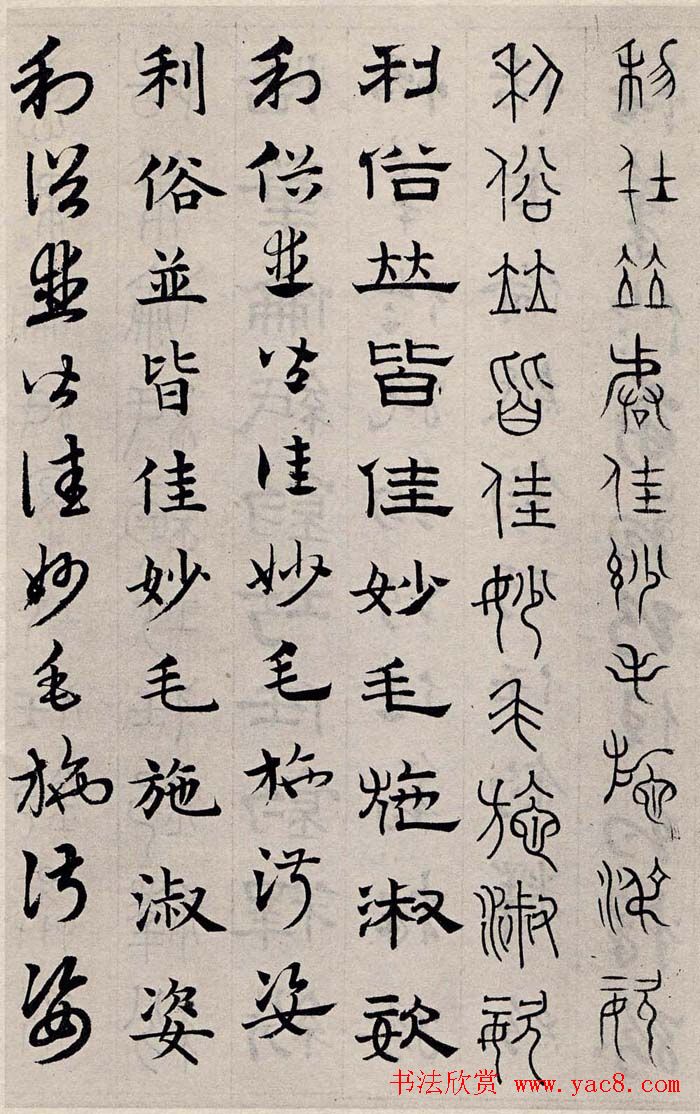 利俗並皆佳妙毛施淑姿
利俗並皆佳妙毛施淑姿
利俗並皆佳妙毛施淑姿
利俗並皆佳妙毛施淑姿
利俗並皆佳妙毛施淑姿
利俗並皆佳妙毛施淑姿
书法欣赏 www.yac8.com